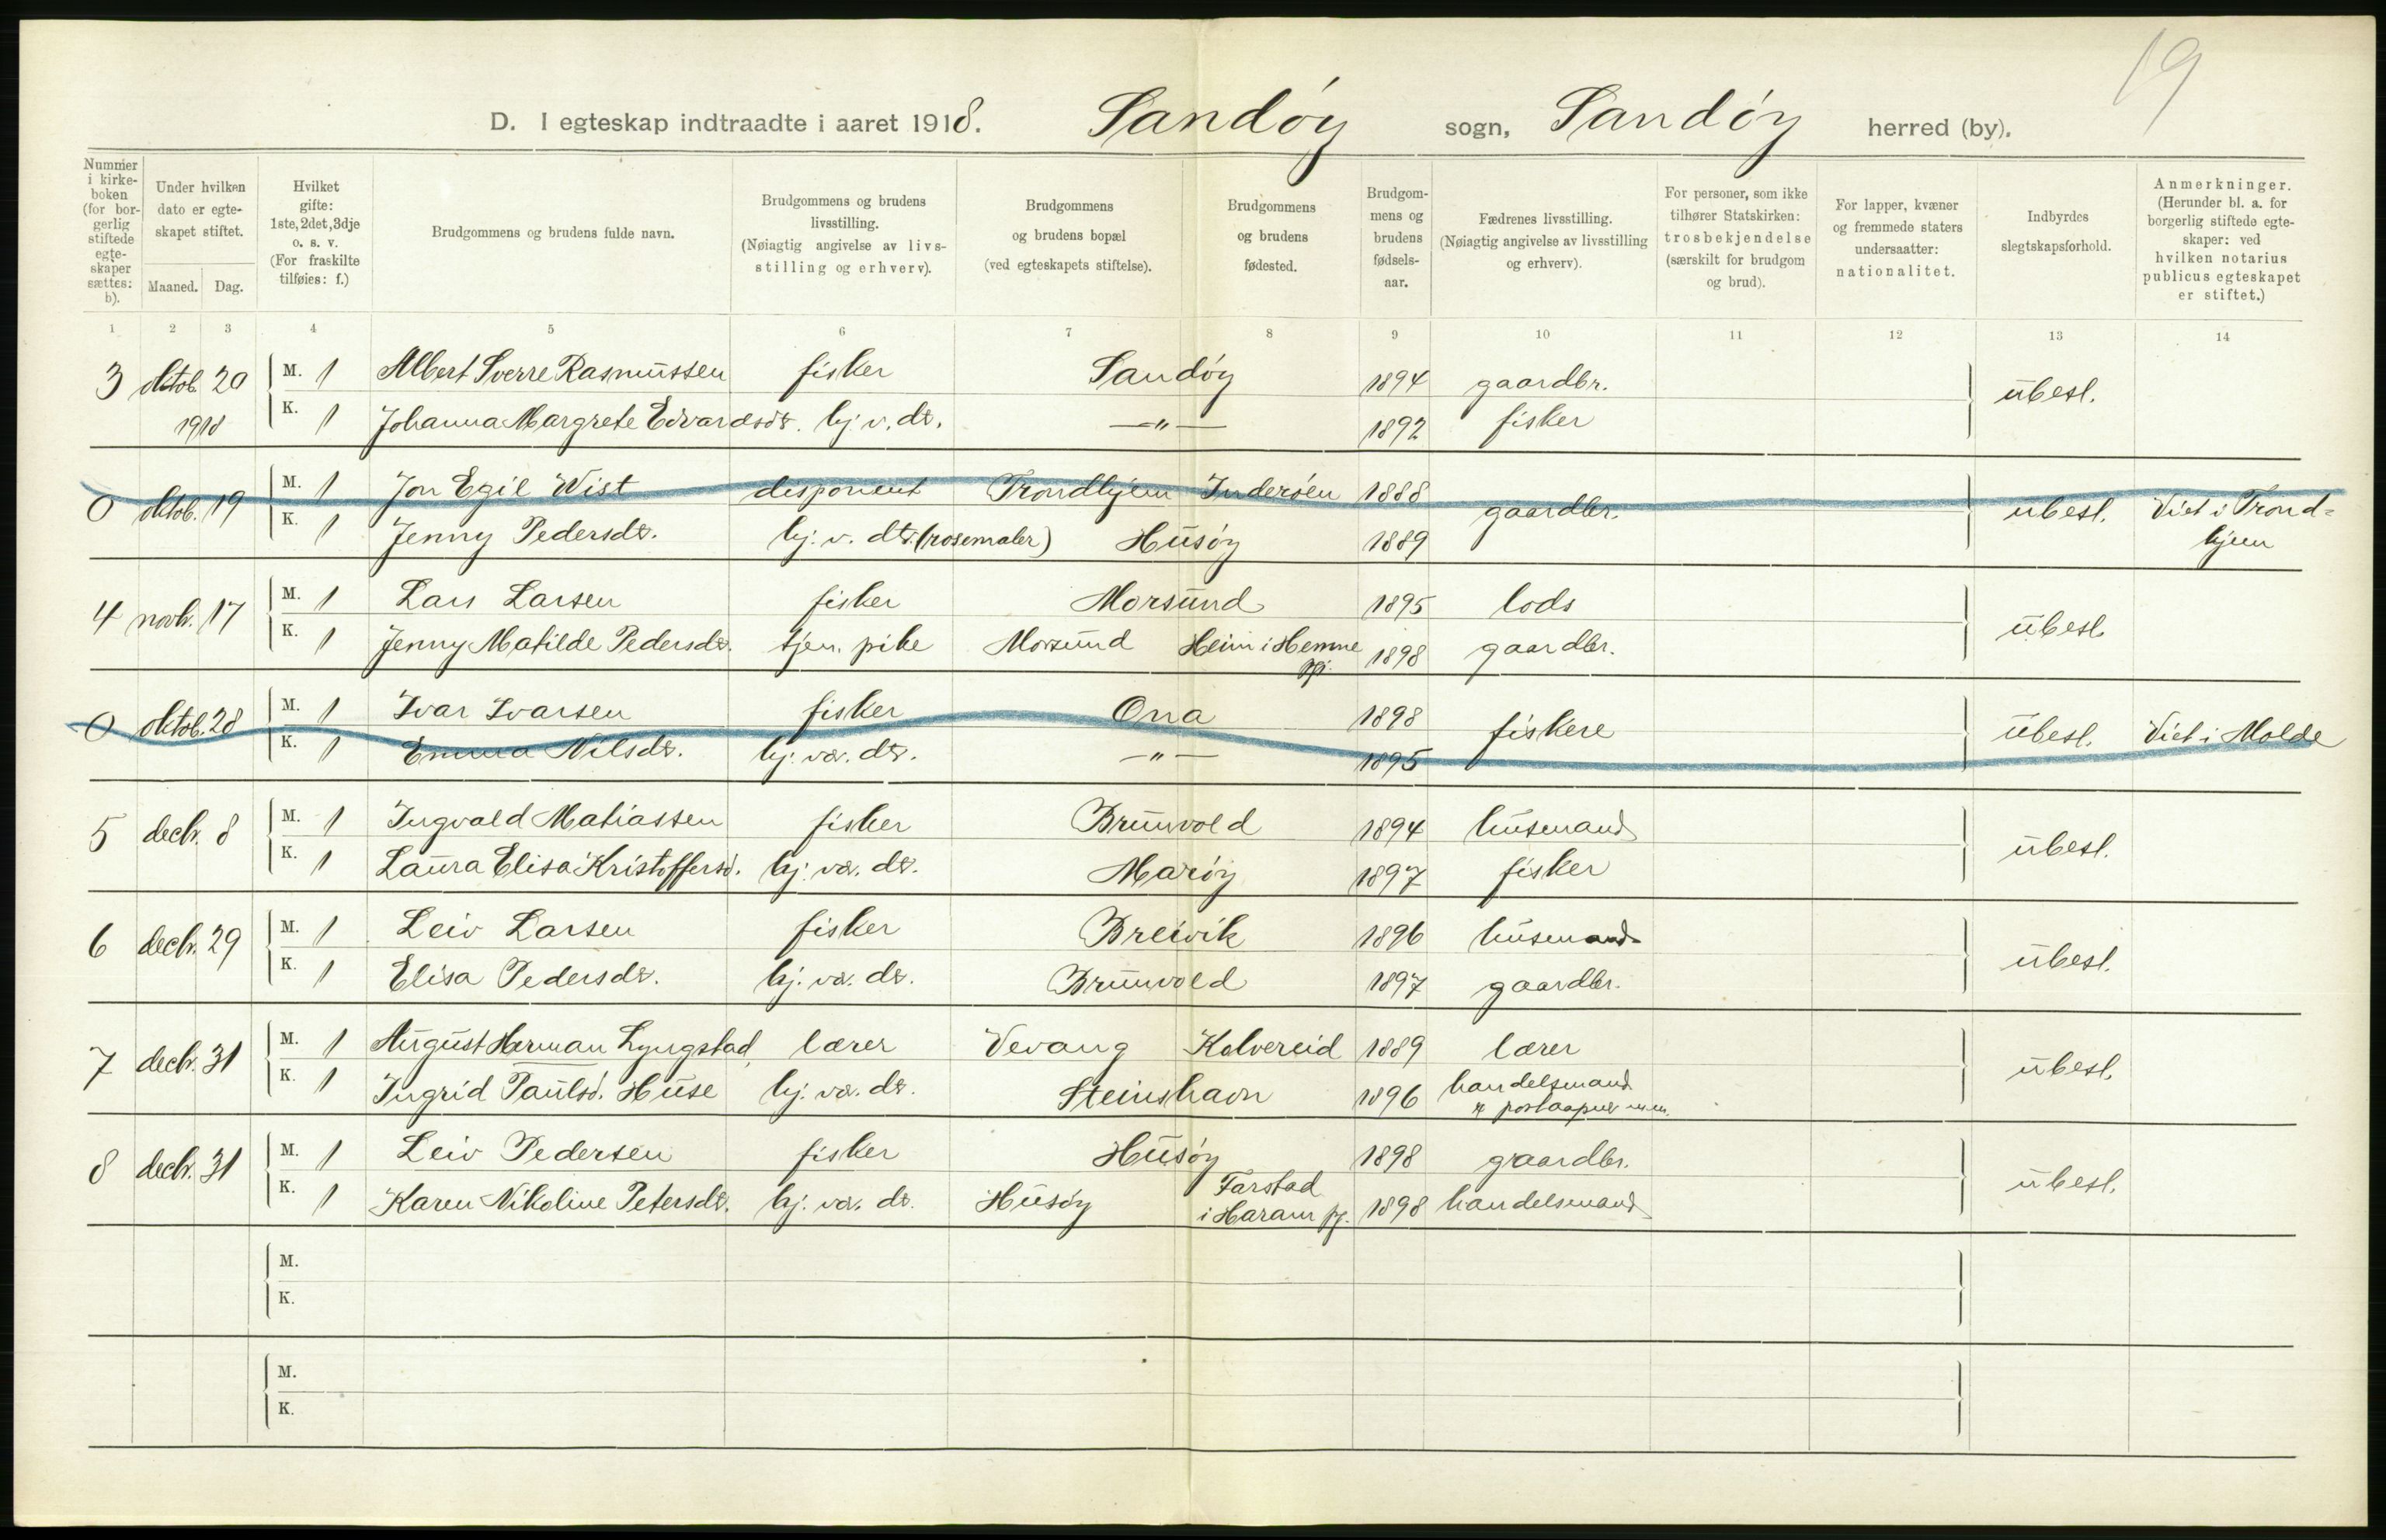 19
D. I egteskap indtraadte i aaret 1918. Sandöy sogn, Sandöy herred (by).
Nummer i kirkeboken (for borgerlig stiftede egteskaper sættes: b).
Under hvilken dato er egteskapet stiftet.
Maaned. Dag.
Hvilket gifte: 1ste, 2det, 3dje o. s. v. (For fraskilte tilføies: f.)
Brudgommens og brudens fulde navn.
Brudgommens og brudens livsstilling. (Nøiagtig angivelse av livsstilling og erhverv).
Brudgommens og brudens bopæl (ved egteskapets stiftelse).
Brudgommens og brudens fødested.
Brudgommens og brudens fødselsaar.
Fædrenes livsstilling. (Nøiagtig angivelse av livsstilling og erhverv).
For personer, som ikke tilhører Statskirken: trosbekjendelse (særskilt for brudgom og brud).
For lapper, kvæner og fremmede staters undersaatter: nationalitet.
Indbyrdes slegtskapsforhold.
Anmerkninger. (Herunder bl. a. for borgerlig stiftede egteskaper: ved hvilken notarius publicus egteskapet er stiftet.)
1 2 3 4 5 6 7 8 9 10 11 12 13 14
3 oktob. 20 M. 1 Albert Sverre Rasmussen fisker Sandöy 1894 gaardbr. ubesl.
1918 K. 1 Johanna Margrete Edvardsdt. hj. v. dt. —"— 1892 fisker
0 oktob. 19 M. 1 Jon Egil Wist disponent Trondhjem Inderöen 1888 gaardbr. ubesl. Viet i Trond=
K. 1 Jenny Pedersdt. hj. v. dt. (rosemaler) Husöy 1889 hjem
4 novb. 17 M. 1 Lars Larsen fisker Morsund 1895 lods ubesl.
K. 1 Jenny Matilde Pedersdt. tjen. pike Morsund Heim i Hemne pgj. 1898 gaardbr.
0 oktob. 28 M. 1 Ivar Ivarsen fisker Ona 1898 fiskere ubesl. Viet i Molde
K. 1 Emma Nilsdt. hj. væ. dt. —"— 1895
5 decbr. 8 M. 1 Ingvald Matiassen fisker Brunvold 1894 husmand ubesl.
K. 1 Laura Elisa Kristoffersd. hj. væ. dt. Maröy 1897 fisker
6 decbr. 29 M. 1 Leiv Larsen fisker Breivik 1896 husmand ubesl.
K. 1 Elisa Pedersdt. hj. væ. dt. Brunvold 1897 gaardbr.
7 decbr. 31 M. 1 August Herman Lyngstad lærer Vevang Kolvereid 1889 lærer ubesl.
K. 1 Ingrid Paulsd. Huse hj. væ. dt. Steinshavn 1896 handelsmand
8 decbr. 31 M. 1 Leiv Pedersen fisker Husöy 1898 gaardbr. ubesl.
K. 1 Karen Nikoline Petersdt. hj. væ. dt. Husöy Farstad i Haram pgj. 1898 handelsmand
M.
K.
M.
K.